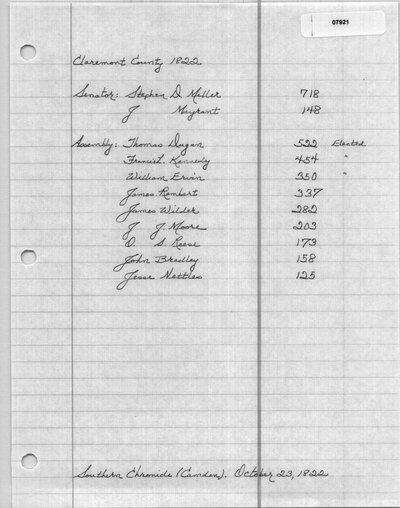 07921
Claremont County 1822
Senator: Stephen D Miller 718
J Mayrant 148
Assembly: Thomas Dugan 522 Elected
Francis L. Kennedy 454 "
William Ervin 350 "
James Rembert 337
James Wilder 282
J J. Moore 203
O. S. Reese 173
John Bradley 158
Jesse Nettles 125
Southern Chronicle (Camden). October 23, 1822